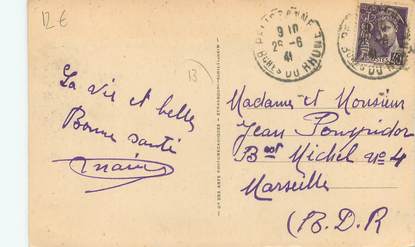 12€
PELISSANNE
9 10
26-6
41
BCHES DU RHONE
POSTES
13
La vie est belle
Bonne santé
Madame et Monsieur
Jean Pompidor
Bd Michel no 4
Marseille
(B.D.R